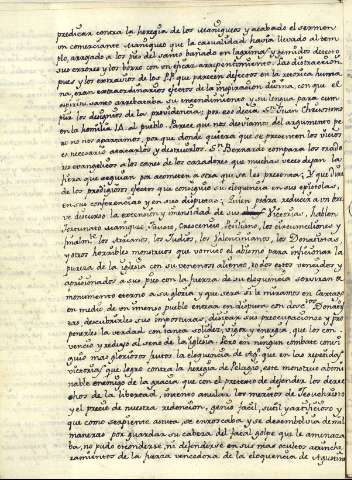 predicar contra la heregia de los Maniqueos y acabado el sermon
un comerciante Maniqueo que la casualidad havia llevado al tem
plo, arrojado a los pies del santo bañado en lagrimas y pidiendo
sus errores y los borró con un eficaz arrepentimiento; las distracciones
pues y los extravios de los PP que parecen defectos en la retorica huma
na, eran extraordinarios efectos de la inspiracion divina, con que el
espiritu santo arrebataba su entendimiento y su lengua para cum
plir los designios de la providencia; por eso decia Sn Juan Chrisostomo
en la homilia al pueblo. Parece que nos desviamos del argumento pe
ro no nos apartamos, por que donde quiera que se presenten los vicios
es necesario atacarlos y destruirlos. Sn Bernardo compara los orado
res evangelicos a los canes de los cazadores que muchas veces dejan la
fiera que seguian por acometer a otra que se les presenta; Y que diré
de los prodigiosos efectos que consiguió su eloquencia en sus epistolas,
en sus conferencias y en sus disputas; Quien podrá reducir a un bre
ve discurso la extension y inmensidad de sus victorias, hablen
Fortunato Maniqueo, Fausto, Crescencio, Petiliano, los circumceliones y
los Arrianos, los Judios, los Jovinianos, los Donatistas
y otros horribles monstruos que vomitó el abismo para inficionar la
pureza de la iglesia con su venenoso aliento, todos estos vencidos y
aprisionados a sus pies con la fuerza de su eloquencia servirán de
monumento eterno a su gloria, y que será si le miramos en Cartago
en medio de un inmenso pueblo entrar en disputa con doscientos Donatis
tas, descubrirles sus imposturas, disipar sus preocupaciones y pro
ponerles la verdad con tanta solidez, vigor y energia, que los con
venció y redujo al seno de la iglesia. Pero en ningun combate consi
guió mas gloriosos frutos la eloquencia de Agn. que en las repetidas
victorias que logró contra la heregia de Pelagio, este monstruo abomi
nable enemigo de la gracia que con el pretexto de defender los dere
chos de la libertad, intentó anular los meritos de Jesuchristo
y el precio de nuestra redencion, genio facil, sutil y artificioso y
que como serpiente astuta se enroscaba y se desembolvia de mil
maneras por guardar su cabeza del fatal golpe que le amenaza
ba, no pudo esconderse, ni defenderse en sus mas ocultos atrinche
ramientos de la fuerza vencedora de la eloquencia de Agustino